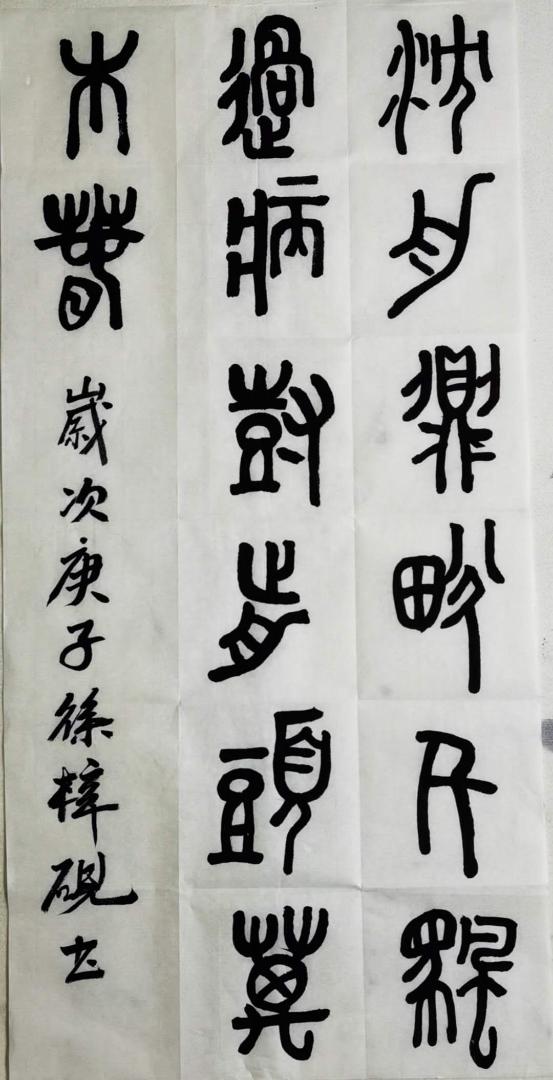 沈舟側畔千帆
過病樹前頭萬
木春 歲次庚子徐梓硯书